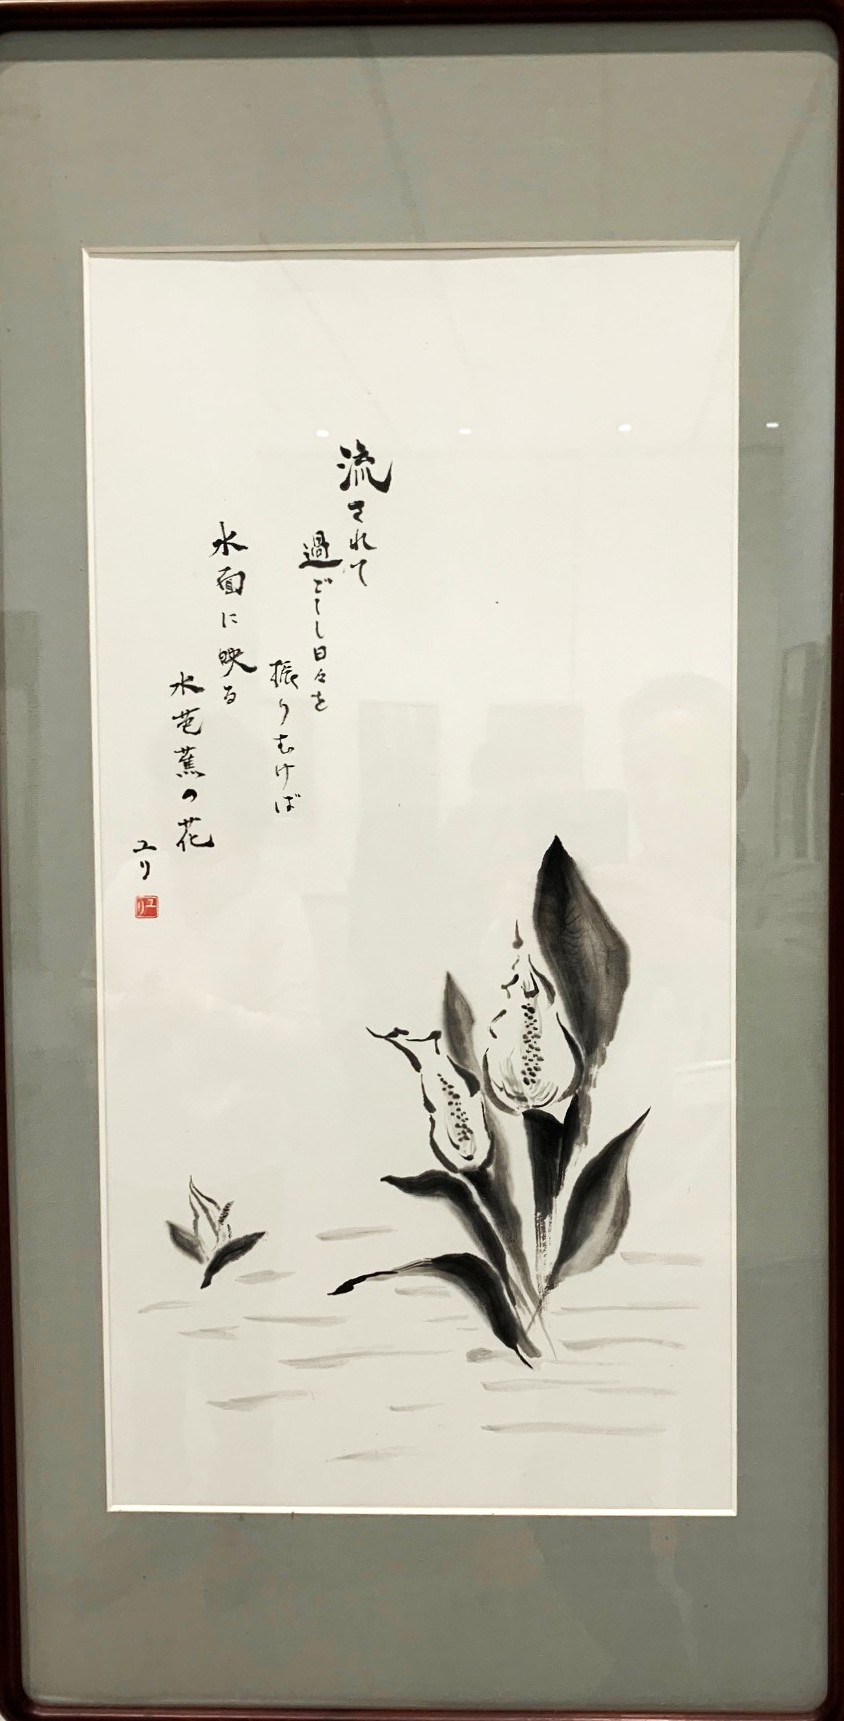 流されて
過ごし日々を
振りむけば
水面に映る
水芭蕉の花
ユリ
ユリ